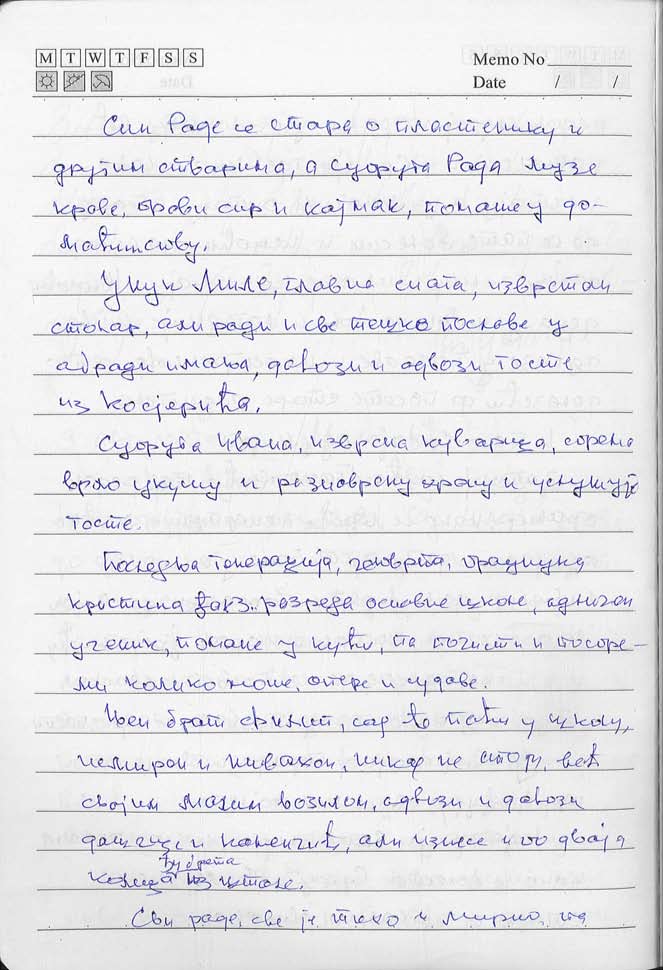 M T W T F S S
Memo No
Date / /
Син Раде се стара о пластенику и
другим стварима, а супруга Рада музе
краве, прави сир и кајмак, помаже у до-
маћинству.
Унук Миле, главна снага, изврстан
сточар, али ради и све тешке послове у
обради имања, довози и одвози госте
из Косјерића.
Супруга Ивана, изврсна куварица, спрема
врло укусну и разноврсну храну и услужује
госте.
Последња генерација, четврта, праунука
Кристина ђак 3. разреда основне школе, одличан
ученик, помаже у кући, па почисти и поспре-
ми колико може, опере и судове.
Њен брат Филип, сад ће поћи у школу,
немиран и живахан, никад не стоји, већ
својим малим возилом, одвози и довози
дашчице и каменчић, али изнесе и по двоја
колица ђубрета из штале.
Сви раде, све је тихо и мирно, па